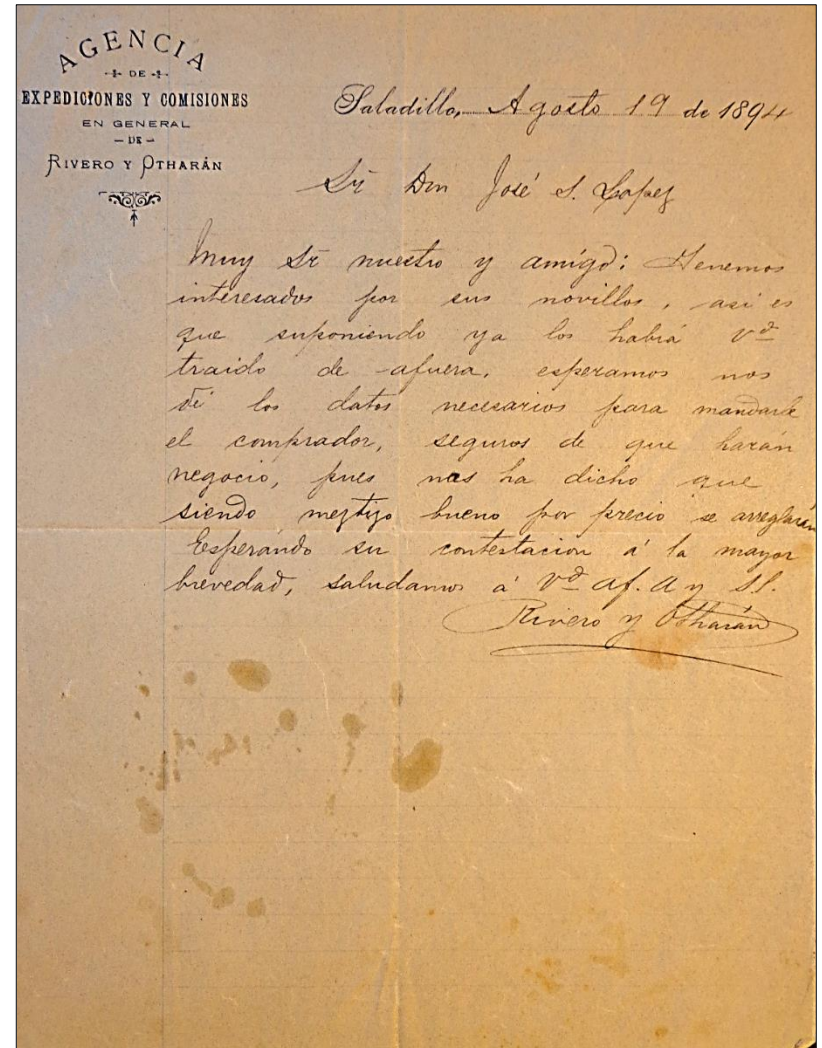 AGENCIA
DE
EXPEDICIONES Y COMISIONES
EN GENERAL
DE
RIVERO Y OTHARÁN
Saladillo, Agosto 19 de 1894
Sr Don José S. Lopez
Muy Sr nuestro y amigo: Tenemos
interesados por sus novillos, asi es
que suponiendo ya los habrá Vd
traido de afuera, esperamos nos
dé los datos necesarios para mandarle
el comprador, seguros de que harán
negocio, pues nos ha dicho que
siendo meztizo bueno por precio se arreglarán
Esperando su contestacion á la mayor
brevedad, saludamos á Vd af. A y S.S.
Rivero y Otharán